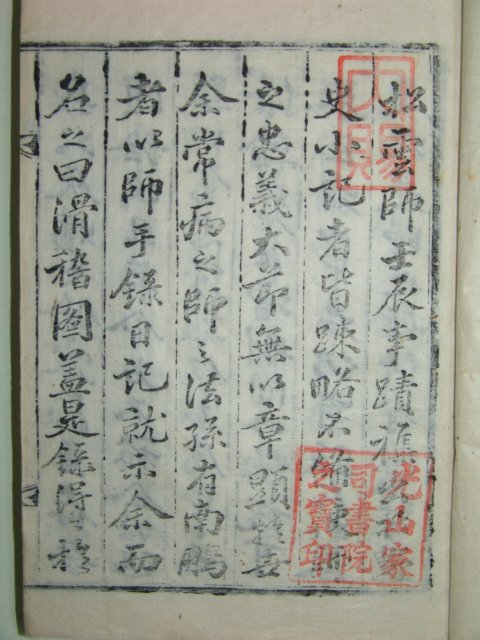 松雲師壬辰事蹟襍出
史小記者皆踈略不備
之忠義大節無以章顯於世
余常病之師之法孫有南鵬
者以師手錄日記就示余而
名之曰滑稽圖盖是錄得之於
內賜
光山家
司書院
之寶印